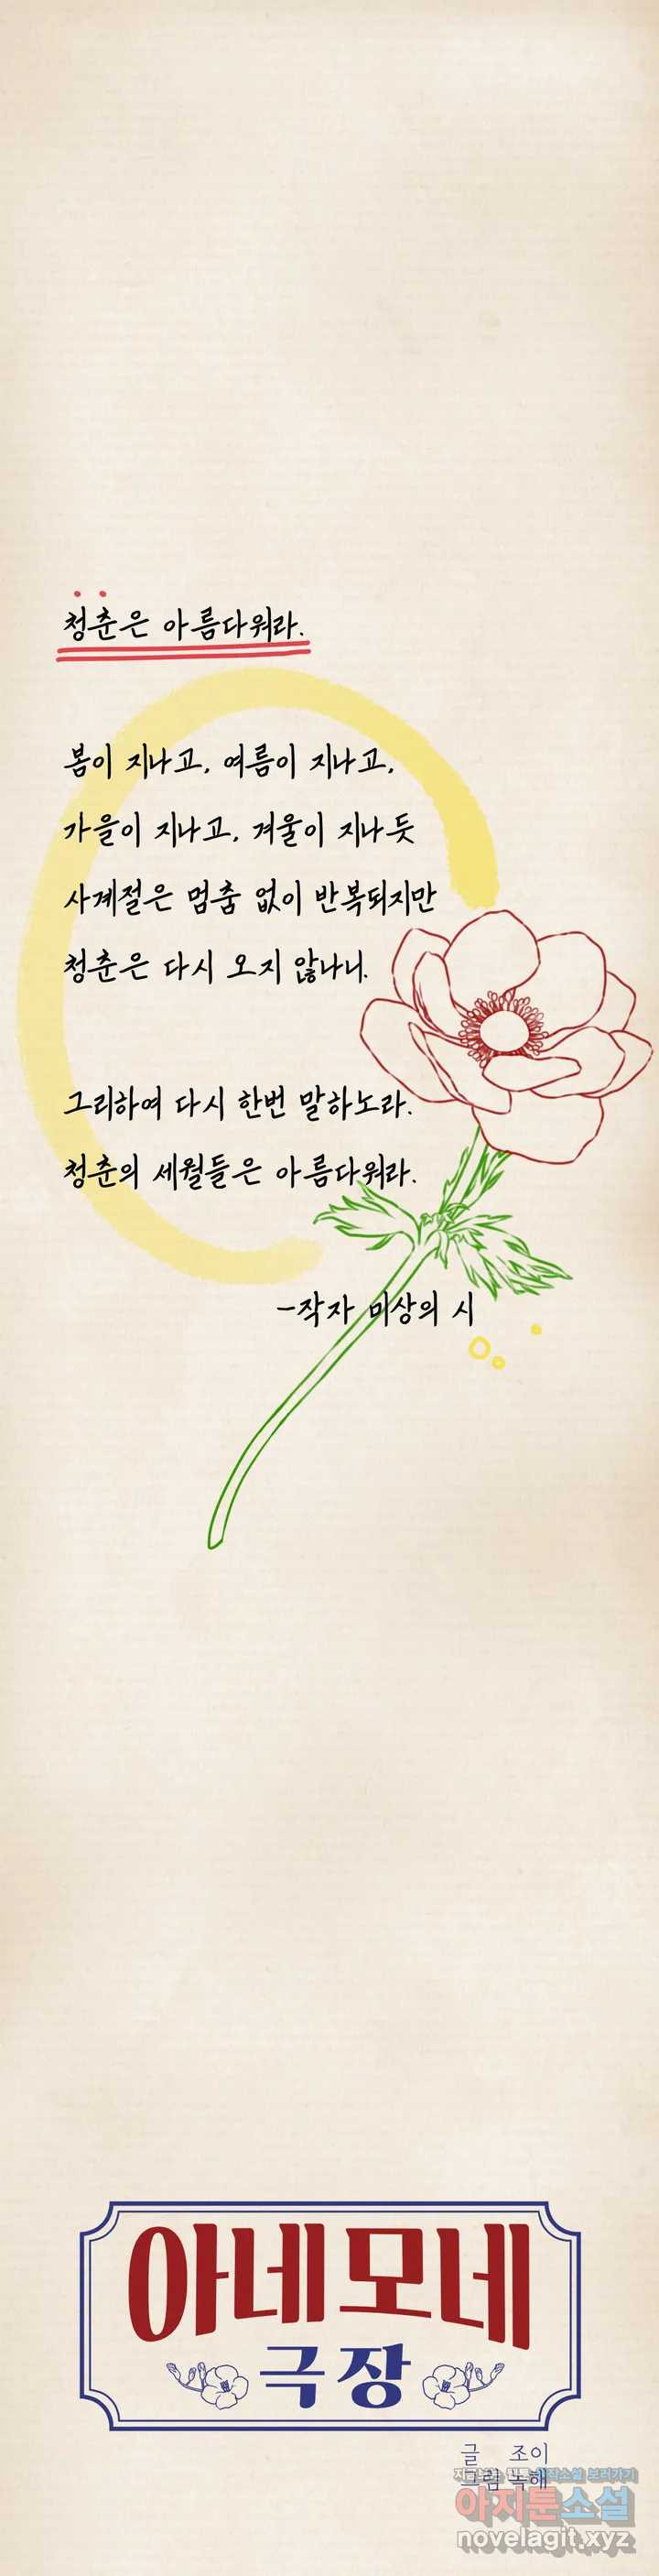 청춘은 아름다워라.
봄이 지나고, 여름이 지나고,
가을이 지나고, 겨울이 지나듯
사계절은 멈춤 없이 반복되지만
청춘은 다시 오지 않나니.
그리하여 다시 한번 말하노라.
청춘의 세월들은 아름다워라.
-작자 미상의 시
아네모네
극장
글 조이
그림 녹해
아지툰소설
novelagit.xyz